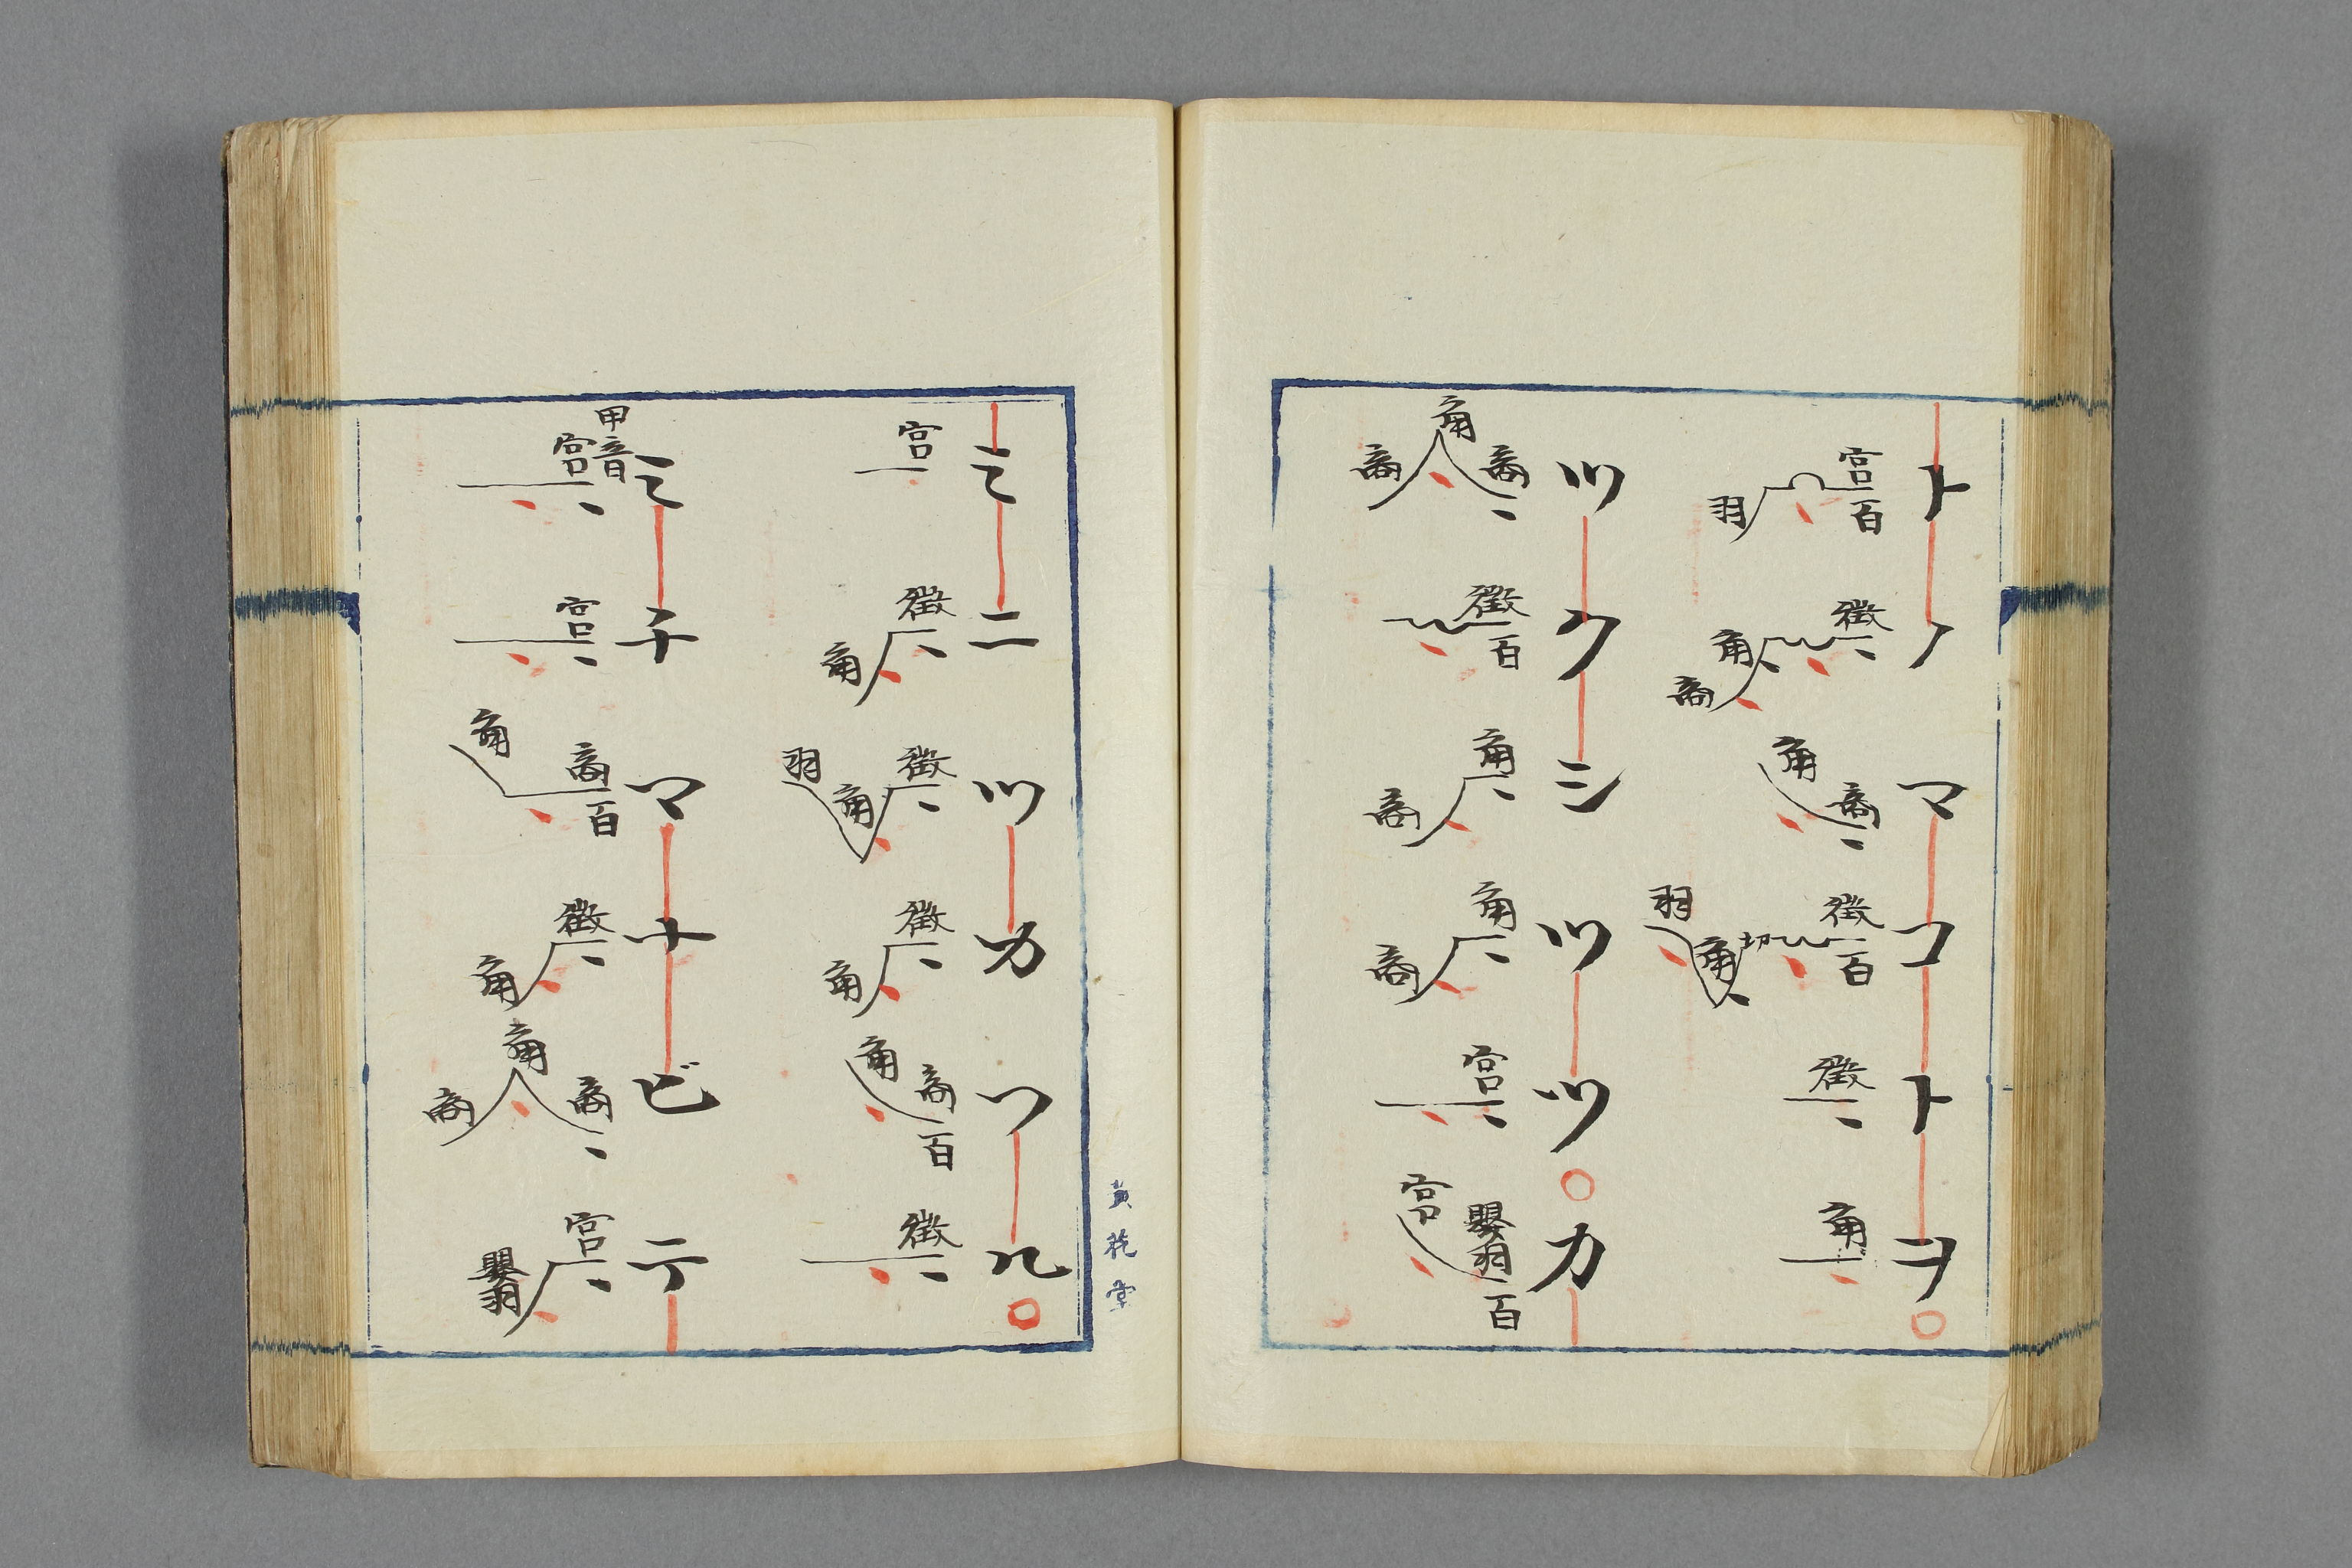 トノマコトヲ○
宮百羽 徴角商 商角 徴百切角羽 徴 角
ツクシツツ○カ
商角商 徴百 角商 角商 宮 嬰羽百宮
ミニツカヘル○
宮 徴角 徴角羽 徴角 商百角 徴
ミチマナビテ
甲音宮 宮 商百角 徴角 商角商 宮嬰羽